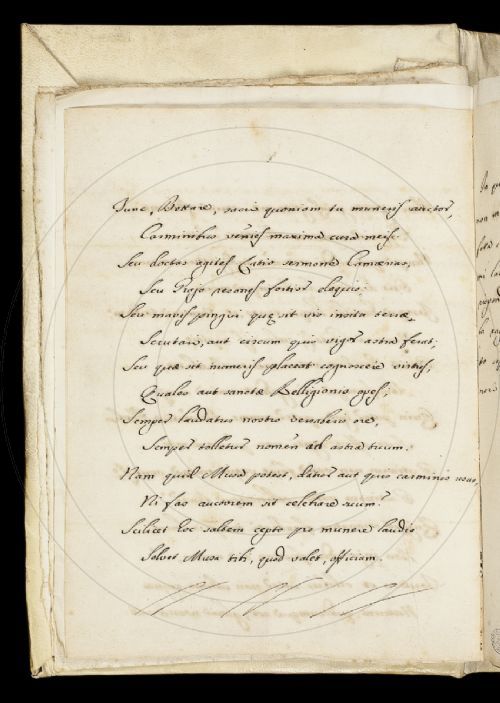 Tunc, Bottare, sacri quoniam tu muneris auctor,
Carminibus venies maxima cura meis.
Seu doctas agites Latio sermone Camœnas,
Seu fortior eloquio:
Seu mavis pingui quę sit vis insita terræ,
Scrutari, aut circum quis vigor astra ferat;
Seu quæ sit numeris placeat cognoscere virtus,
Quales aut sanctæ Relligionis opes;
Semper laudatus nostro versaberis ore,
Semper tolletur nomen ad astra tuum.
Nam quid Musa potest, dator aut quis carminis
Ni fas auctorem sit celebrare suum?
Scilicet hoc saltem cepto pro munere laudis
Solvet Musa tibi, quod valet, officium.